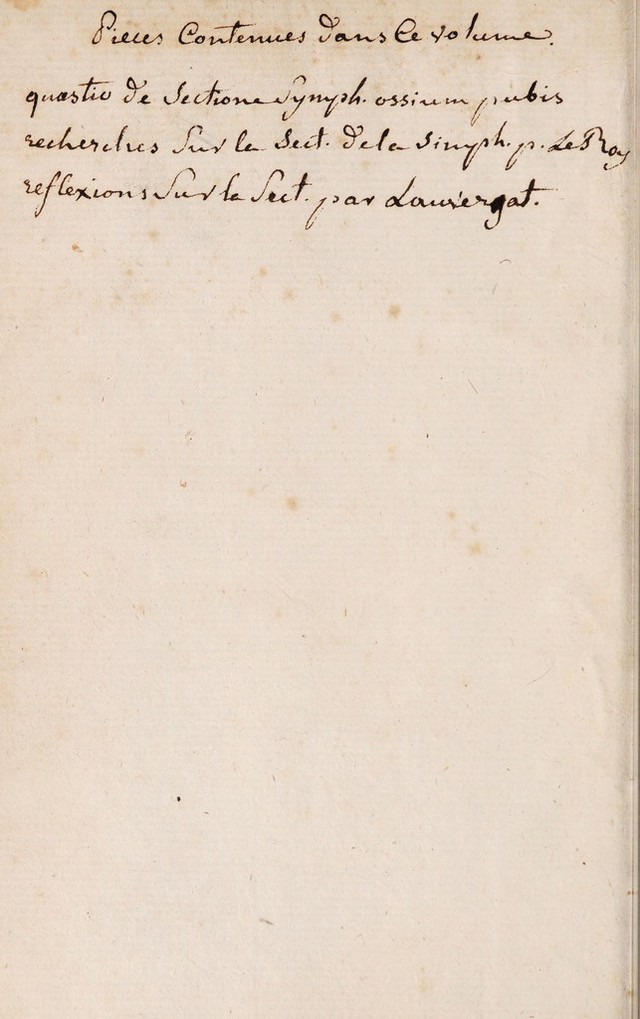 Pieces Contenues dans ce volume.
quæstio de Sectione Symph. ossium pubis
recherches Sur la Sect. de la Simph. p. Le Roy
reflexions Sur la Sect. par Lauvergat.